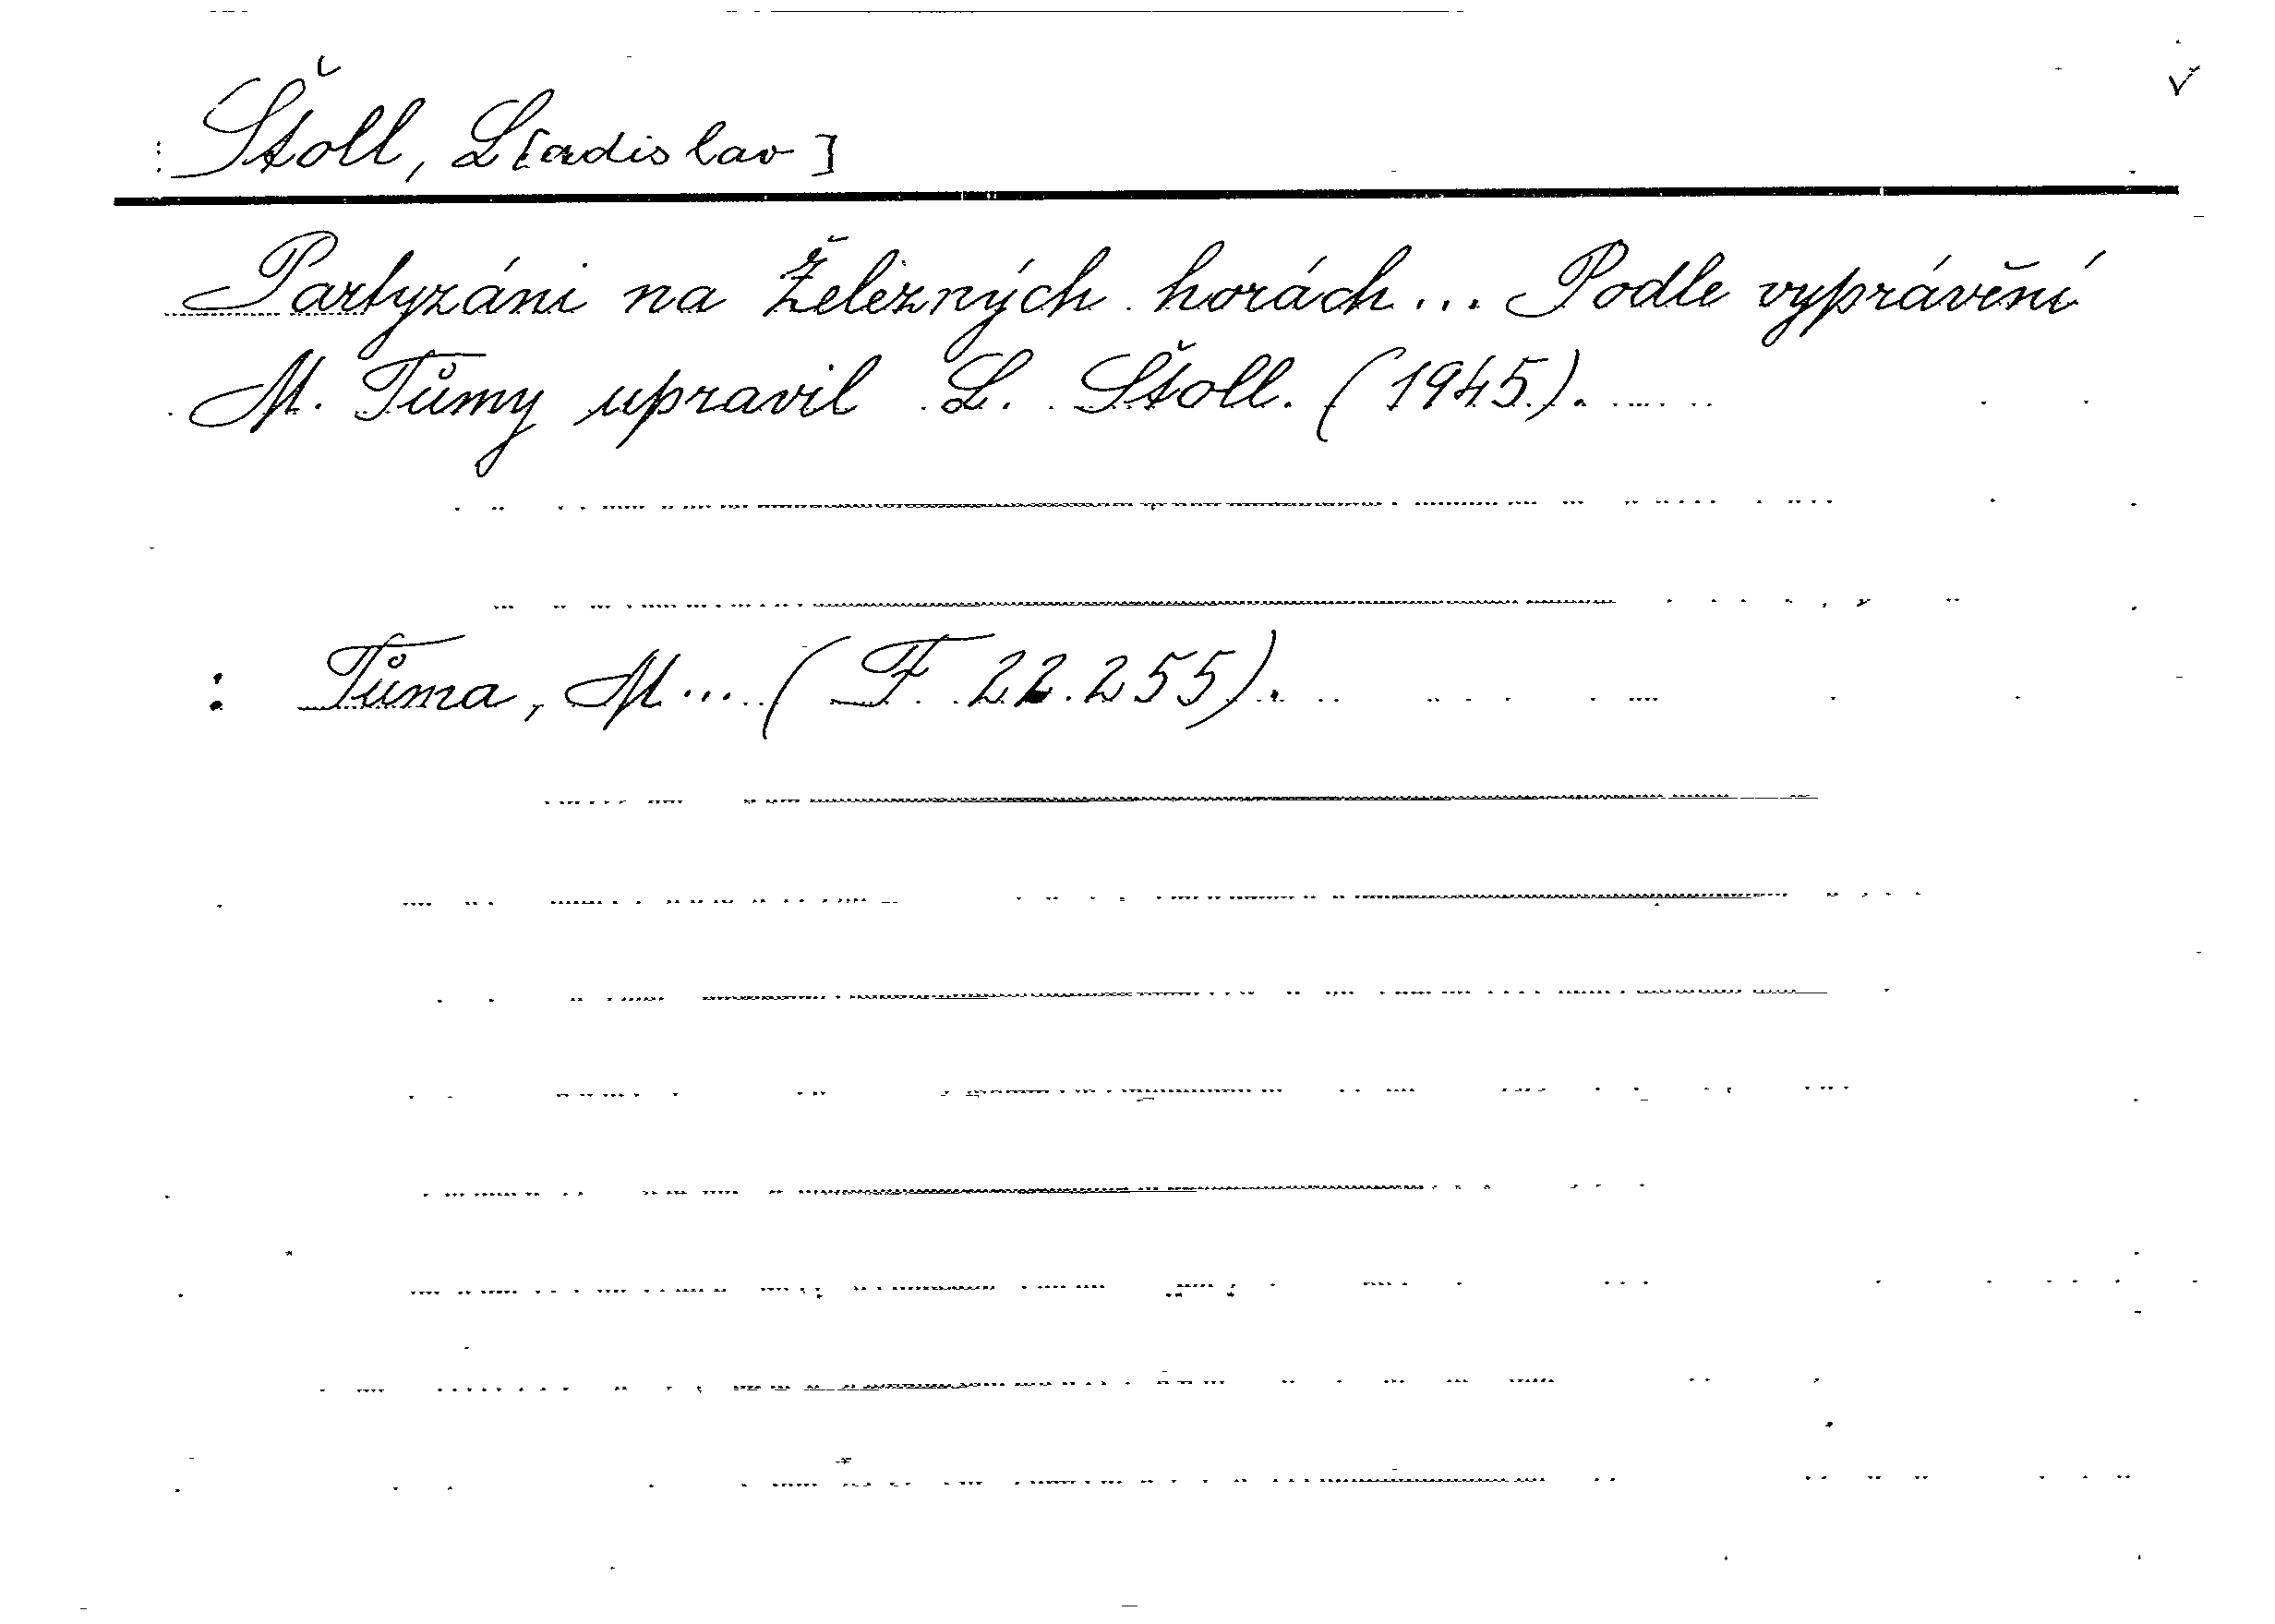 : Štoll, L[adislav]
Partyzáni na Železných horách... Podle vyprávění
M. Tůmy upravil L. Štoll. (1945).
: Tůma, M... (F 22.255).